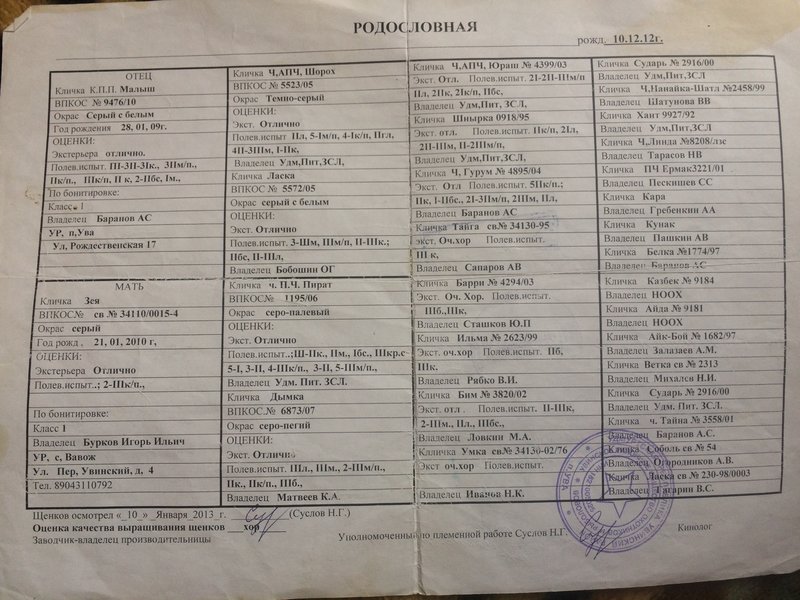 РОДОСЛОВНАЯ
рожд. 10.12.12г.
ОТЕЦ
Кличка К.П.П. Малыш
ВПКОС № 9476/10
Окрас Серый с белым
Год рождения 28, 01, 09г.
ОЦЕНКИ:
Экстерьера отлично.
Полев.испыт. ПІ-3ІІ-3Ік., 3ІІм/п.,
Пк/п., ІІІк/п, ІІ к, 2-Пбс, Ім.,
По бонитировке:
Класс. 1
Владелец Баранов АС
УР, п,Ува
Ул, Рождественская 17
МАТЬ
Кличка Зея
ВПКОС№ св № 34110/0015-4
Окрас серый
Год рожд . 21, 01, 2010 г,
ОЦЕНКИ:
Экстерьера Отлично
Полев.испыт..; 2-ІІІк/п.,
По бонитировке:
Класс 1
Владелец Бурков Игорь Ильич
УР, с, Вавож
Ул. Пер, Увинский, д, 4
Тел. 89043110792
Кличка Ч,АПЧ, Шорох
ВПКОС № 5523/05
Окрас Темно-серый
ОЦЕНКИ:
Экст. Отлично
Полев.испыт Пл, 5-Ім/п, 4-Ік/п, Пгл,
4П-3ІПм, І-Пк,
Владелец Удм,Пит,ЗСЛ,
Кличка Ласка
ВПКОС № 5572/05
Окрас серый с белым
ОЦЕНКИ:
Экст. Отлично
Полев.испыт. 3-Шм, ІІІм/п, ІІ-ІІІк.;
Пбс, ІІ-ІІІл,
Владелец Бобошин ОГ
Кличка ч. П.Ч. Пират
ВПКОС№ 1195/06
Окрас серо-палевый
ОЦЕНКИ:
Экст. Отлично
Полев.испыт..;Ш-Пк., Пм., Ібс., ІІІкр.с
5-І, 3-ІІ, 4-ІІІк/п., 3-ІІ, 5-ІІІм/п.,
Владелец Удм. Пит. ЗСЛ.
Кличка Дымка
ВПКОС.№ 6873/07
Окрас серо-пегий
ОЦЕНКИ:
Экст. Отлично
Полев.испыт. ІІІл., ІІІм., 2-ІІІм/п.,
Пк., Пк/п., ІІІб.,
Владелец Матвеев К.А.
Кличка Ч,АПЧ, Юраш № 4399/03
Экст. Отл. Полев.испыт. 2І-2ІІ-ІІІм/п
Пл, 2Пк, 2Ік/п, Пбс,
Владелец Удм,Пит, ЗСЛ,
Кличка Шнырка 0918/95
Экст. отл. Полев.испыт. Пк/п, 2Ил,
2ІІ-ІІІм, ІІ-2ІІІм/п,
Владелец Удм,Пит,ЗСЛ
Кличка Ч, Гурум № 4895/04
Экст. Отл Полев.испыт. 5Пк/п.;
Пк, І-Пбс., 2І-3ІІм/п, 2ІІІм, Пл,
Владелец Баранов АС
Кличка Тайга св№ 34130-95
экст. Оч.хор Полев.испыт.
ІІІ к,
Владелец Сапаров АВ
Кличка Барри № 4294/03
Экст. Оч. Хор. Полев.испыт.
ІІІб.,ІІІк,
Владелец Сташков Ю.П
Кличка Ильма № 2623/99
Экст. оч.хор Полев.испыт. Пб,
ІІІк.
Владелец Рябко В.И.
Кличка Бим № 3820/02
Экст. отл . Полев.испыт. ІІ-ІІІк,
2-ІІІм., Пл., ІІІбс.,
Владелец Ловкин М.А.
Кличка Умка св№ 34130-02/76
Экст оч.хор Полев.испыт.
Владелец Иванов Н.К.
Кличка Сударь № 2916/00
Владелец Удм,Пит,ЗСЛ
Кличка Ч,Нанайка-Шатл №2458/99
Владелец Шатунова ВВ
Кличка Хант 9927/92
Владелец Удм,Пит,ЗСЛ
Кличка Ч,Линда №8208/лзс
Владелец Тарасов НВ
Кличка ПЧ Ермак3221/01
Владелец Пескишев СС
Кличка Кара
Владелец Гребенкин АА
Кличка Кунак
Владелец Пашкин АВ
Кличка Белка №1774/97
Владелец Баранов АС
Кличка Казбек № 9184
Владелец НООХ
Кличка Айда № 9181
Владелец НООХ
Кличка Айк-Бой № 1682/97
Владелец Залазаев А.М.
Кличка Ветка св № 2313
Владелец Михалев Н.И.
Кличка Сударь № 2916/00
Владелец Удм. Пит. ЗСЛ.
Кличка ч. Тайна № 3558/01
Владелец Баранов А.С.
Кличка Соболь св № 54
Владелец Огородников А.В.
Кличка Ласка св № 230-98/0003
Владелец Гагарин В.С.
Щенков осмотрел « 10 » Января 2013 г. (Суслов Н.Г.)
Оценка качества выращивания щенков хор
Заводчик-владелец производительницы
Уполномоченный по племенной работе Суслов Н.Г. Кинолог